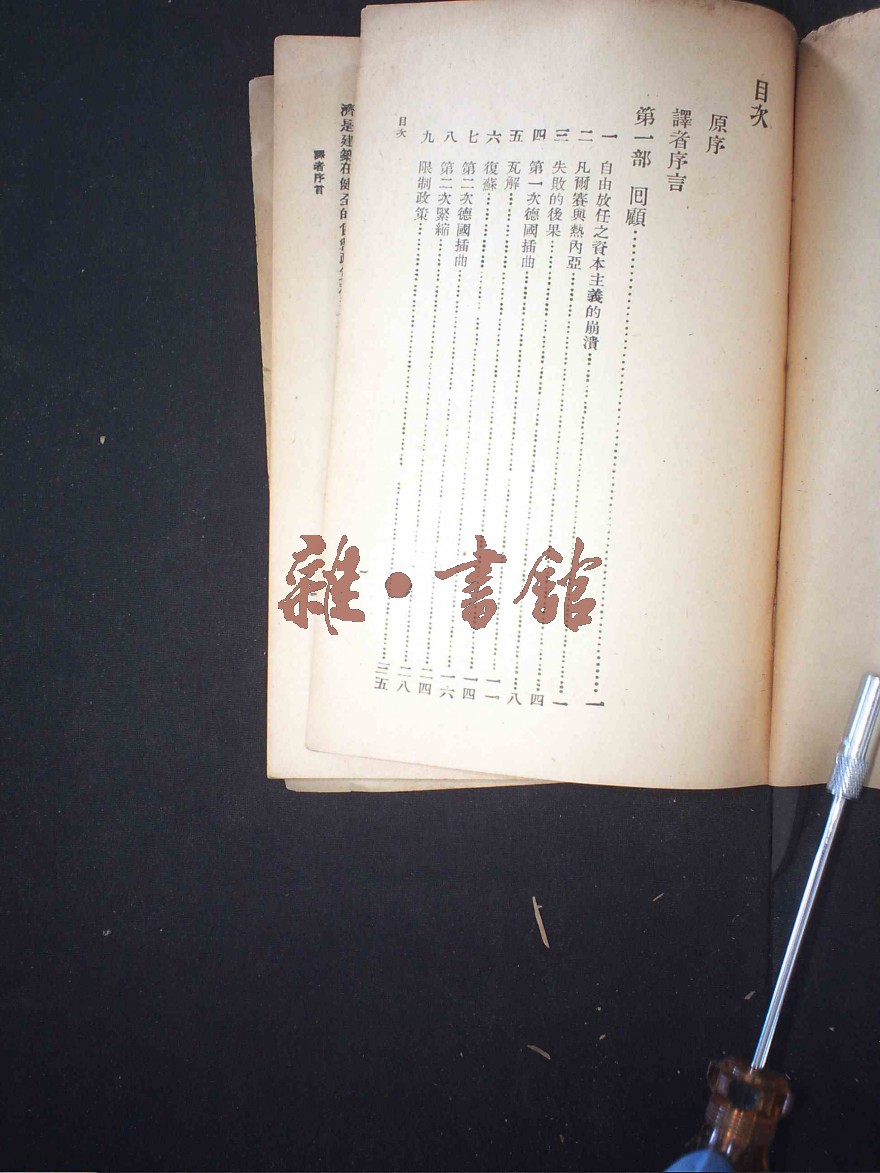 目次
原序
譯者序言
第一部 回顧……一
一 自由放任之資本主義的崩潰……一
二 凡爾賽與熱內亞……四
三 失敗的後果……八
四 第一次德國插曲……一一
五 瓦解……一四
六 復蘇……一六
七 第二次德國插曲……二四
八 第二次緊縮……二八
九 限制政策……三五
目次
一
濟是建築在健全的
譯者序言
雜·書館